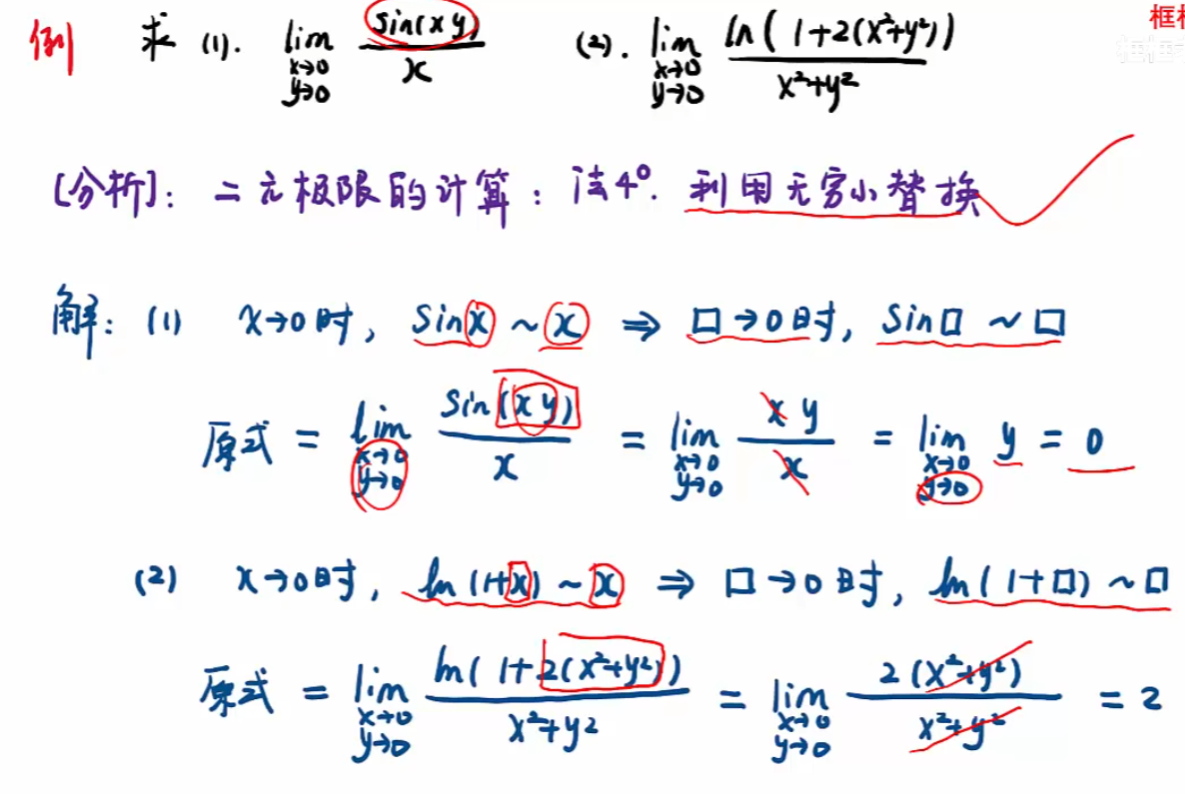 框框
例 求 (1). lim x→0 y→0 sin(xy)/x (2). lim x→0 y→0 ln(1+2(x²+y²))/x²+y²
[分析]: 二元极限的计算: 法4°. 利用无穷小替换
解: (1) x→0时, sinx ~ x ⇒ □→0时, sin□ ~ □
原式 = lim x→0 y→0 sin(xy)/x = lim x→0 y→0 xy/x = lim x→0 y→0 y = 0
(2) x→0时, ln(1+x) ~ x ⇒ □→0时, ln(1+□) ~ □
原式 = lim x→0 y→0 ln(1+2(x²+y²))/x²+y² = lim x→0 y→0 2(x²+y²)/x²+y² = 2